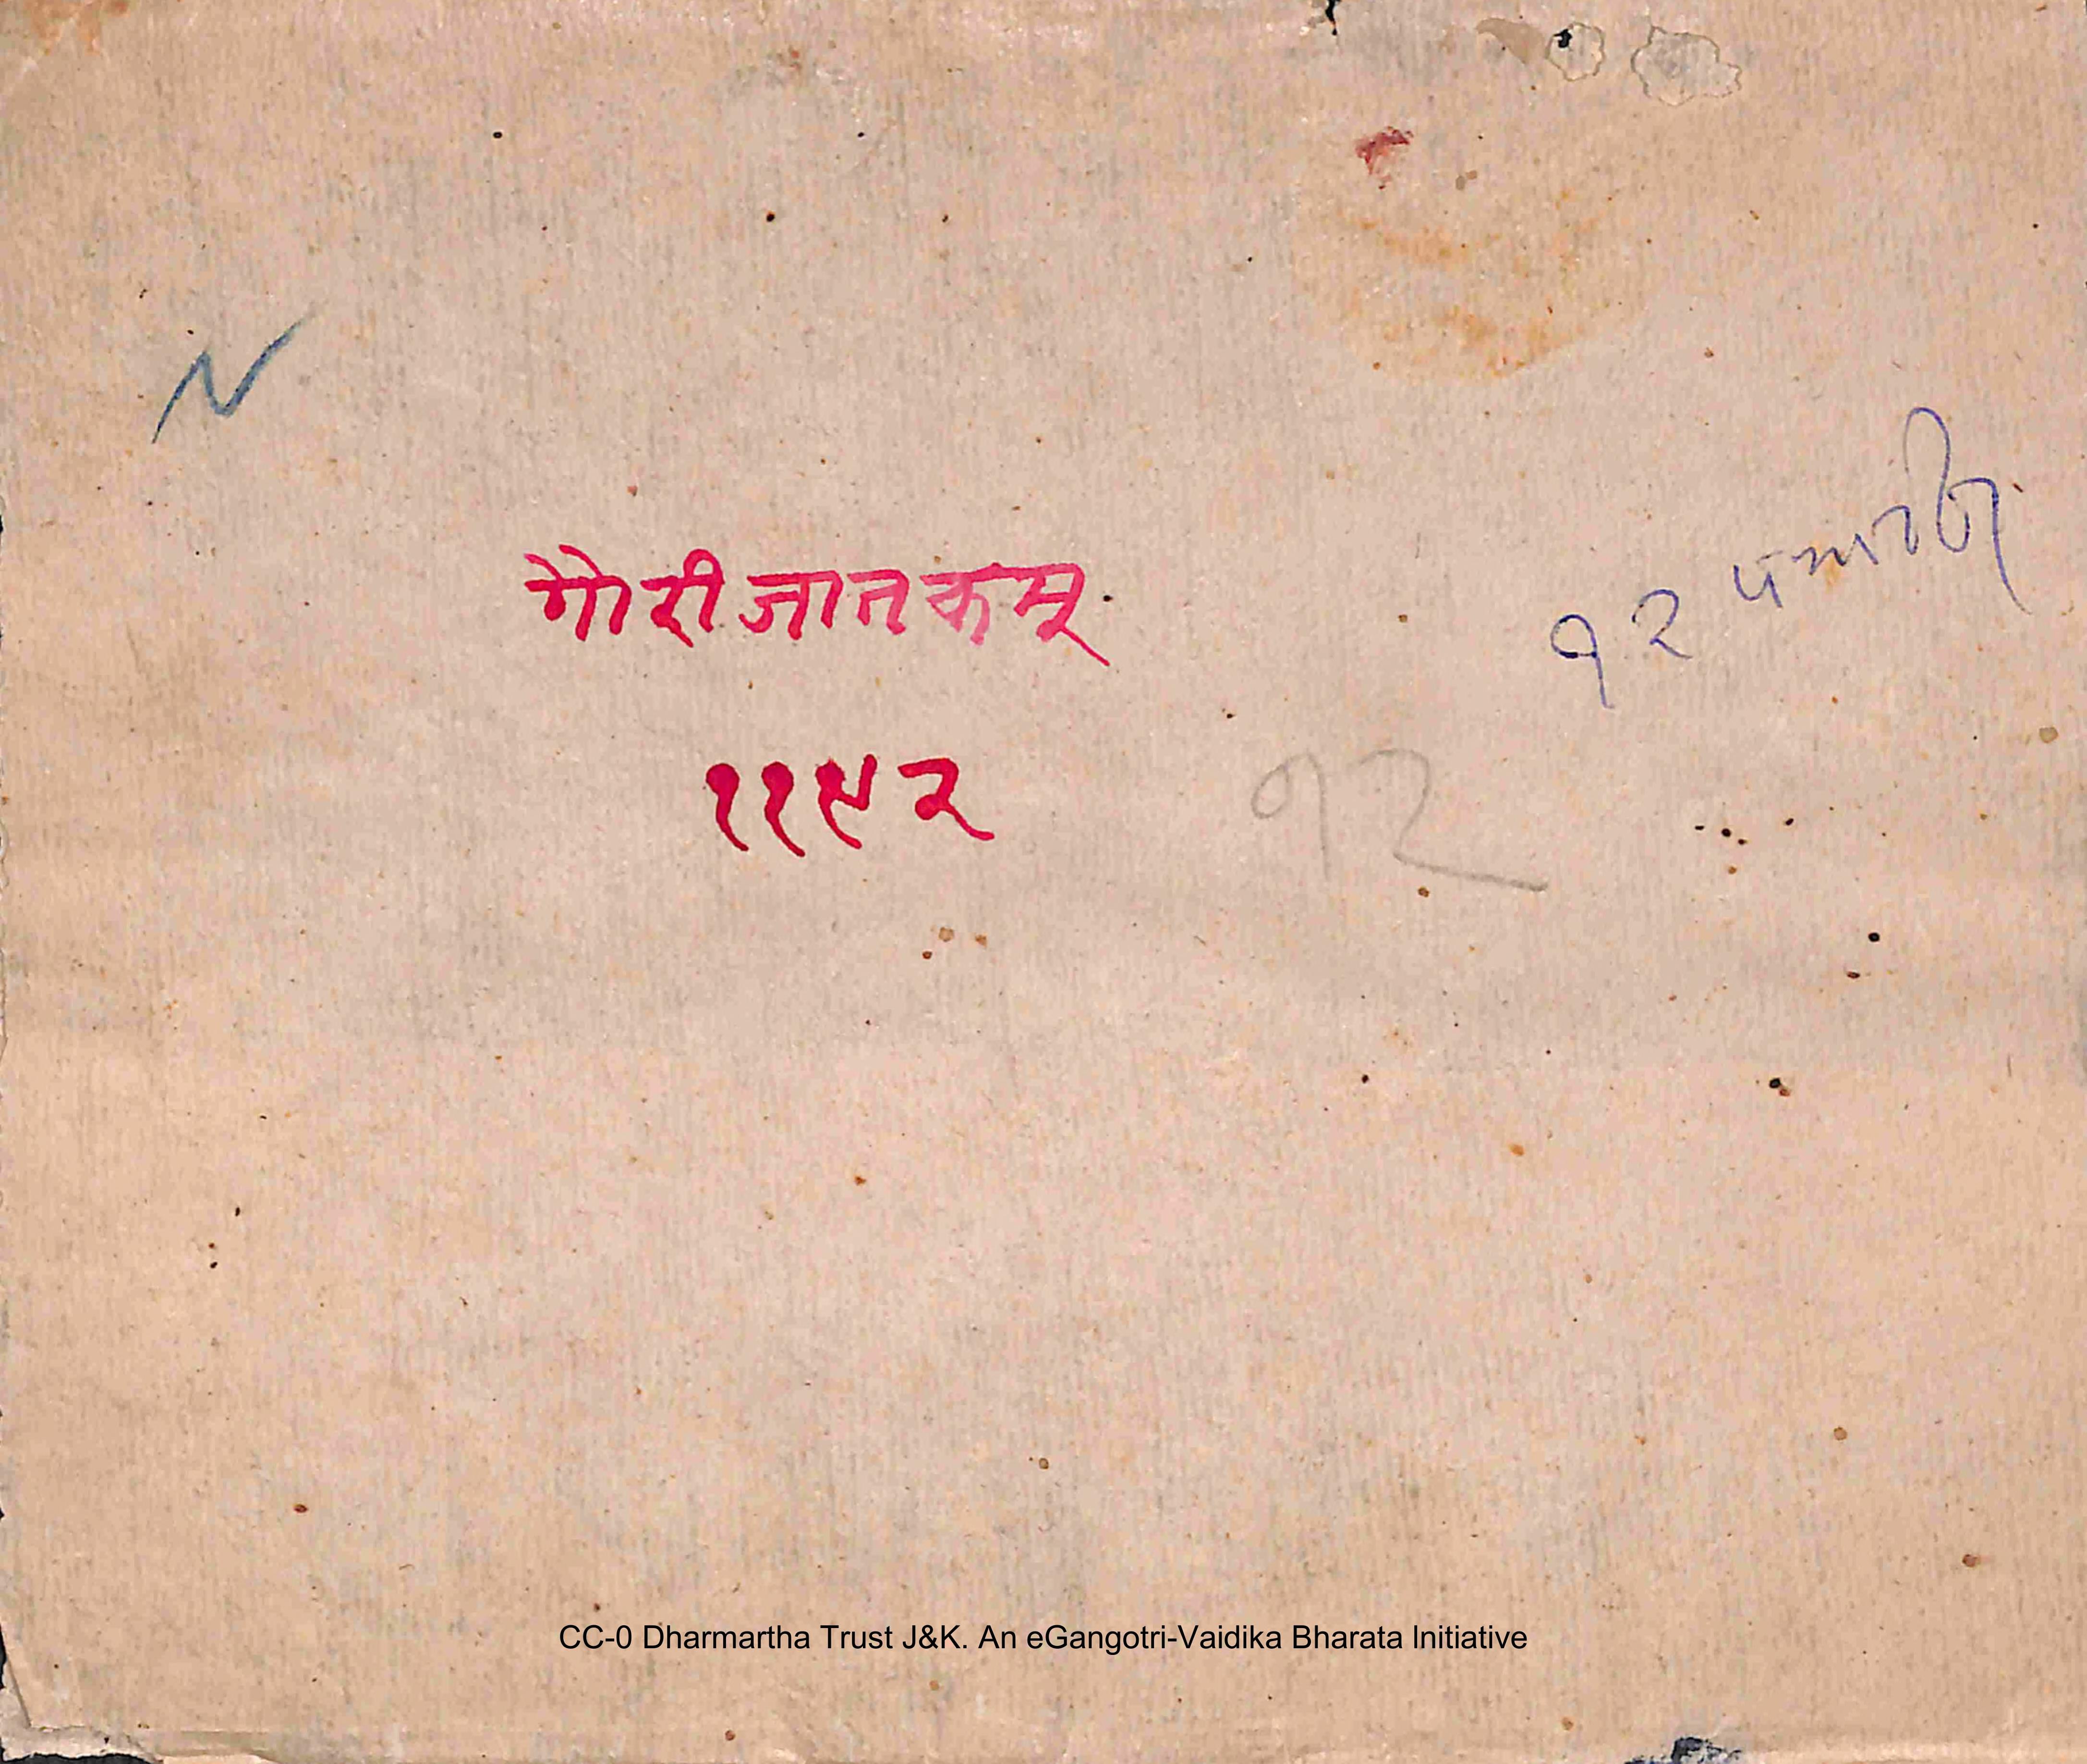 गौरी जातकम्
१२
११९२
१२
CC-0 Dharmartha Trust J&K. An eGangotri-Vaidika Bharata Initiative